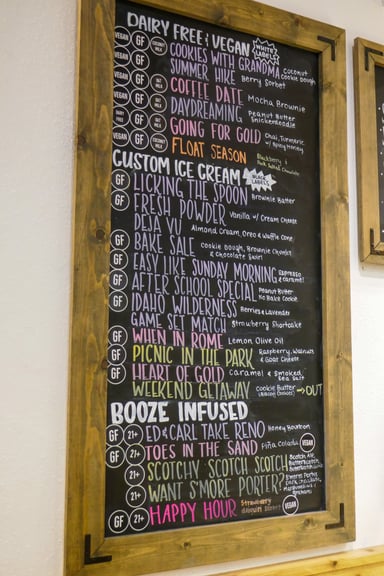 DAIRY FREE & VEGAN WHITE LABELS
VEGAN GF COCONUT MILK COOKIES WITH GRANDMA Coconut Cookie Dough
VEGAN GF SUMMER HIKE Berry Sorbet
VEGAN GF OAT MILK COFFEE DATE Mocha Brownie
VEGAN GF OAT MILK DAYDREAMING Peanut Butter Snickerdoodle
DAIRY FREE GF GOING FOR GOLD Chai, Turmeric w/ Spicy Honey
VEGAN GF COCONUT MILK FLOAT SEASON Blackberry & Chocolate
CUSTOM ICE CREAM LABELS
GF LICKING THE SPOON Brownie Batter
GF FRESH POWDER Vanilla w/ Cream Cheese
DEJA VU Almond Cream, Oreo & Waffle Cone
GF BAKE SALE Cookie Dough, Brownie Chunks & Chocolate Swirl
GF EASY LIKE SUNDAY MORNING Espresso & Caramel
GF AFTER SCHOOL SPECIAL Peanut Butter No Bake Cookie
GF IDAHO WILDERNESS Berries & Lavender
GAME SET MATCH Strawberry Shortcake
GF WHEN IN ROME Lemon Olive Oil
GF PICNIC IN THE PARK Raspberry, Walnuts & Goat Cheese
GF HEART OF GOLD Caramel & Smoked Sea Salt
WEEKEND GETAWAY Cookie Butter → OUT
BOOZE INFUSED
GF 21+ ED & CARL TAKE RENO Honey Bourbon
GF 21+ TOES IN THE SAND Piña Colada VEGAN
21+ SCOTCHY SCOTCH SCOTCH Scotch Ale, Butterscotch,
21+ WANT S'MORE PORTER?
GF 21+ HAPPY HOUR Strawberry VEGAN